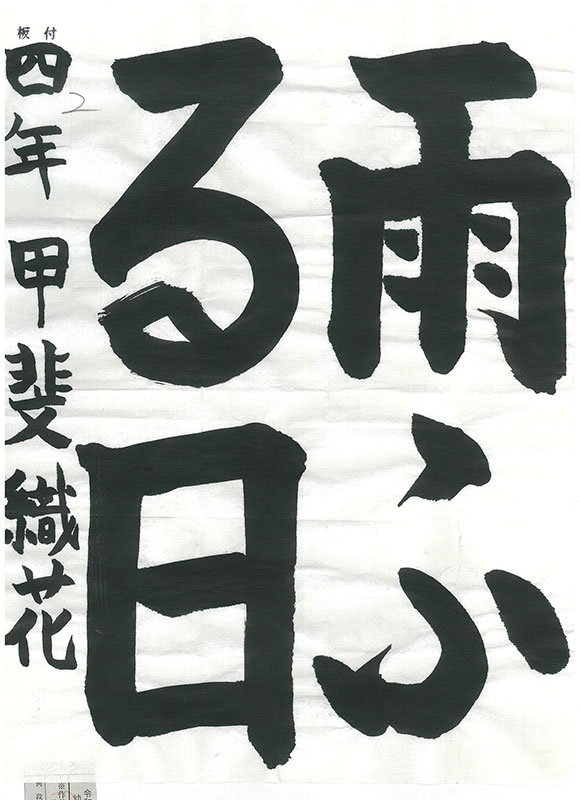 雨ふ
る日
付板
四年 甲斐織花